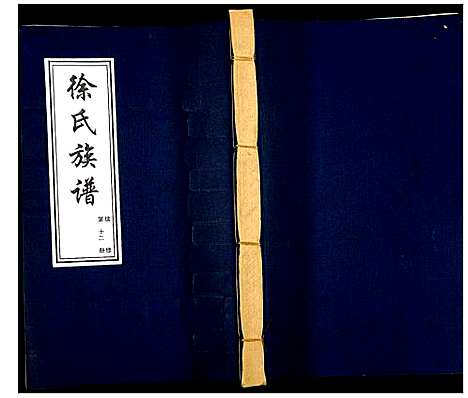 徐氏族谱
第十二册